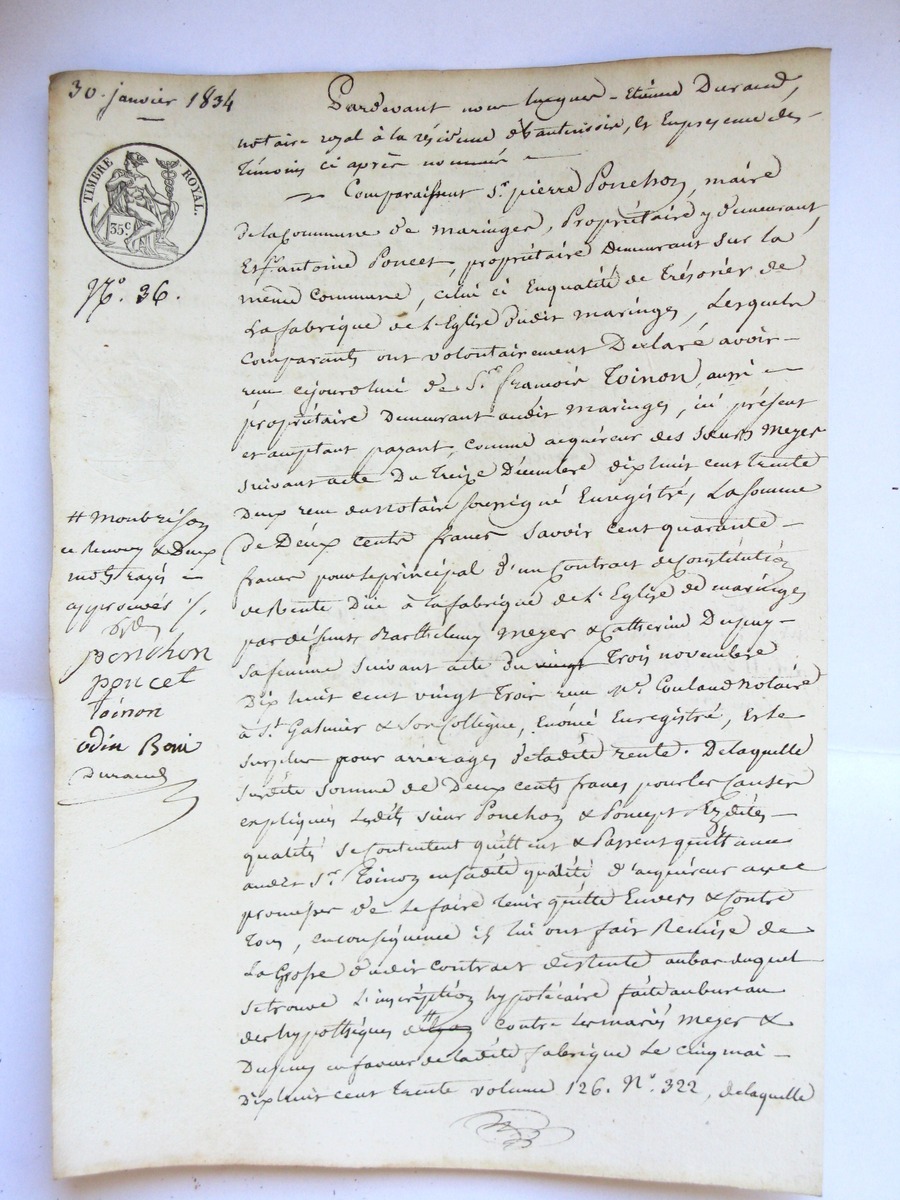 30. janvier 1834
TIMBRE ROYAL.
35c.
N.o 36.
Pardevant nous Jacques-Etienne Durand,
notaire royal à la résidence de Chantenissoire, et En presence des
Témoins ci après nommés
Comparaissent Sr. pierre Ponchon, maire
de la Commune de maringes, Propriétaire y demeurant
Et Sr. antoine Poncet, propriétaire Demeurant sur la
même Commune, celui ci En qualité de Trésorier de
La fabrique de L'Eglise dudit maringes, Lesquels
Comparants ont volontairement Declaré avoir
reçu cejourdhui de Sr. françois Toinon, aussi
propriétaire Demeurant audit maringes, ici présent
et acceptant payant, comme acquéreur des sœurs Meyer
suivant acte Du Treize Décembre dix huit cent trente
Deux reçu du notaire soussigné Enregistré, La somme
de Deux cents francs savoir cent quarante
francs pour le principal d'un Contrat de Constitution
de Rente Due à la fabrique de L'Eglise de maringes
par défunts Barthelemy Meyer & Catherine Dupuy
sa femme suivant acte du vingt Trois novembre
Dix huit cent vingt Trois reçu Me. Couland Notaire
à St. Galmier & son Collègue, Enregistré, Et le
surplus pour arrérages de ladite rente. De laquelle
susdite Somme de Deux cents francs pour les Causes
expliqués Lesdits sieur Ponchon & Poncept Ezdites
qualités se contentent quittent & Passent quittance
audit Sr. Toinon en sadite qualité d'acquéreur avec
promesses de Le faire tenir quitte Envers & Contre
Tous, en conséquence ils lui ont fait Remise de
La Grosse dudit contrat de rente au bas duquel
se trouve L'inscription hypotécaire faite au bureau
des hypothèques de # contre Les mariés Meyer &
Dupuy en faveur de ladite fabrique Le cinq mai
Dix huit cent trente volume 126. N.o 322, de laquelle
# Montbrison
ce Renvoy & Deux
mots rayés
approuvés
ponchon
poncet
toinon
odin Boni
Durand